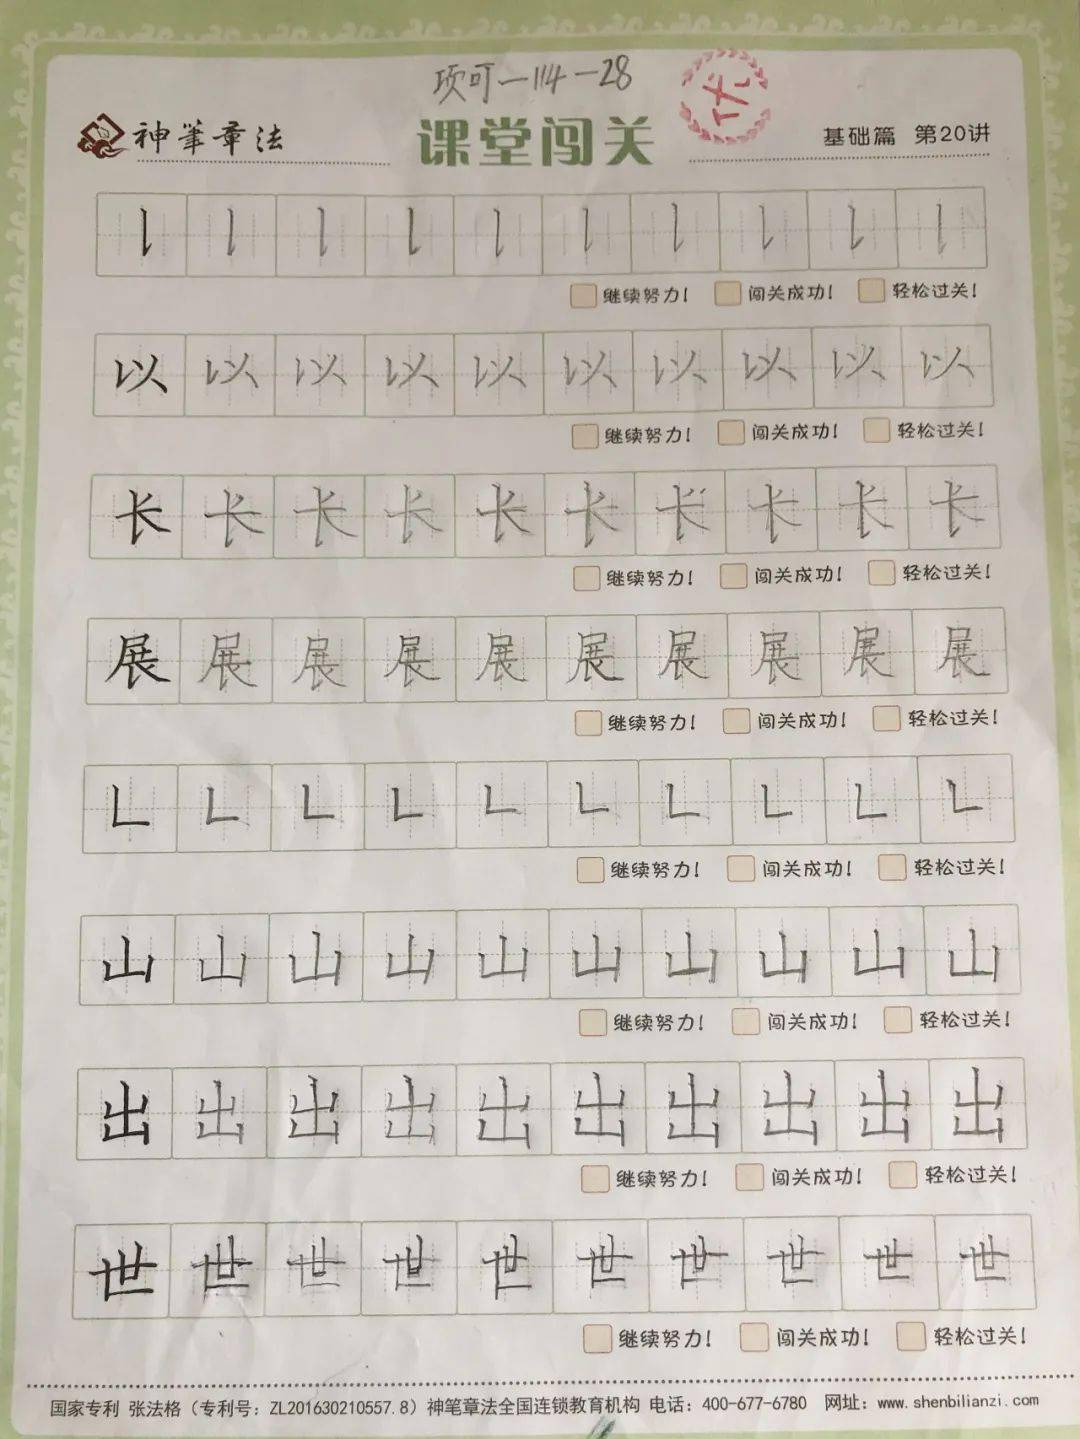 项可一114-28
优
神笔章法
课堂闯关
基础篇 第20讲
继续努力! 闯关成功! 轻松过关!
以 以 以 以 以 以 以 以 以 以
继续努力! 闯关成功! 轻松过关!
长 长 长 长 长 长 长 长 长 长
继续努力! 闯关成功! 轻松过关!
展 展 展 展 展 展 展 展 展 展
继续努力! 闯关成功! 轻松过关!
继续努力! 闯关成功! 轻松过关!
山 山 山 山 山 山 山 山 山 山
继续努力! 闯关成功! 轻松过关!
出 出 出 出 出 出 出 出 出 出
继续努力! 闯关成功! 轻松过关!
世 世 世 世 世 世 世 世 世 世
继续努力! 闯关成功! 轻松过关!
国家专利 张法格（专利号：ZL201630210557.8）神笔章法全国连锁教育机构 电话：400-677-6780 网址：www.shenbilianzi.com